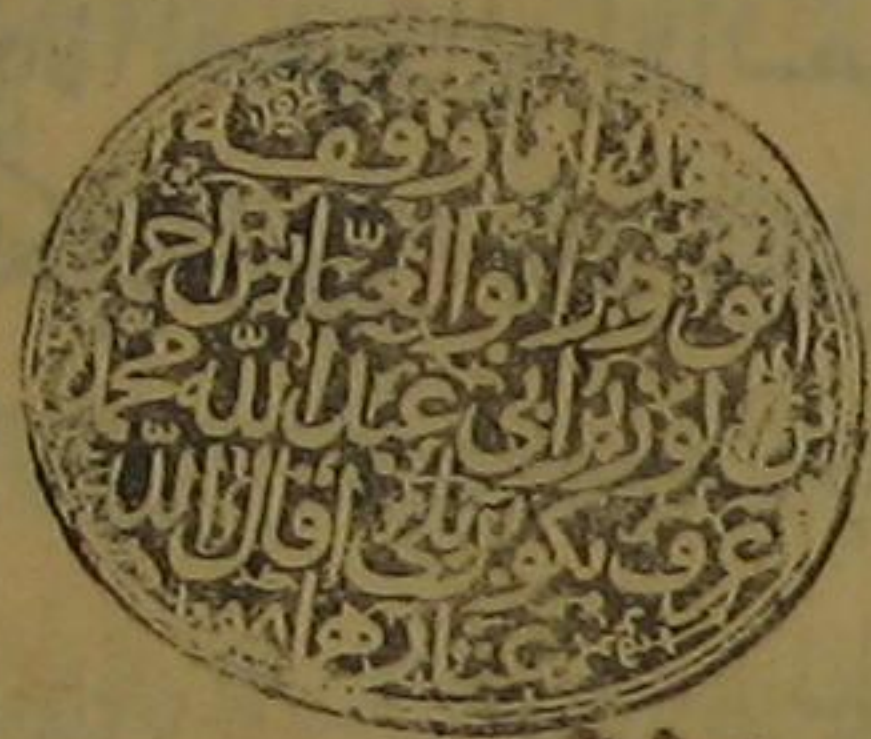 هذا مما وقفه
الوزير ابو العباس احمد
بن الوزير ابي عبد الله محمد
عرف بكوبريلى اقال الله
عثارهما ١٠٨٨